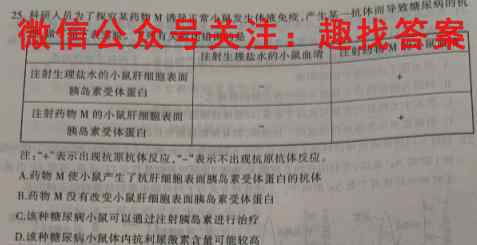 25. 科研人员为了探究某药物M诱导正常小鼠发生体液免疫，产生某一抗体而导致糖尿病的机
微信公众号关注：趣找答案
注射生理盐水的小鼠血清
注射生理盐水的小鼠肝细胞表面
胰岛素受体蛋白
－
＋
注射药物M的小鼠肝细胞表面
胰岛素受体蛋白
－
＋
注："+"表示出现抗原抗体反应，"-"表示不出现抗原抗体反应。
A.药物M使小鼠产生了抗肝细胞表面胰岛素受体蛋白的抗体
B.药物M没有改变小鼠肝细胞表面胰岛素受体蛋白
C.该种糖尿病小鼠可以通过注射胰岛素进行治疗
D.该种糖尿病小鼠体内抗利尿激素含量可能较高